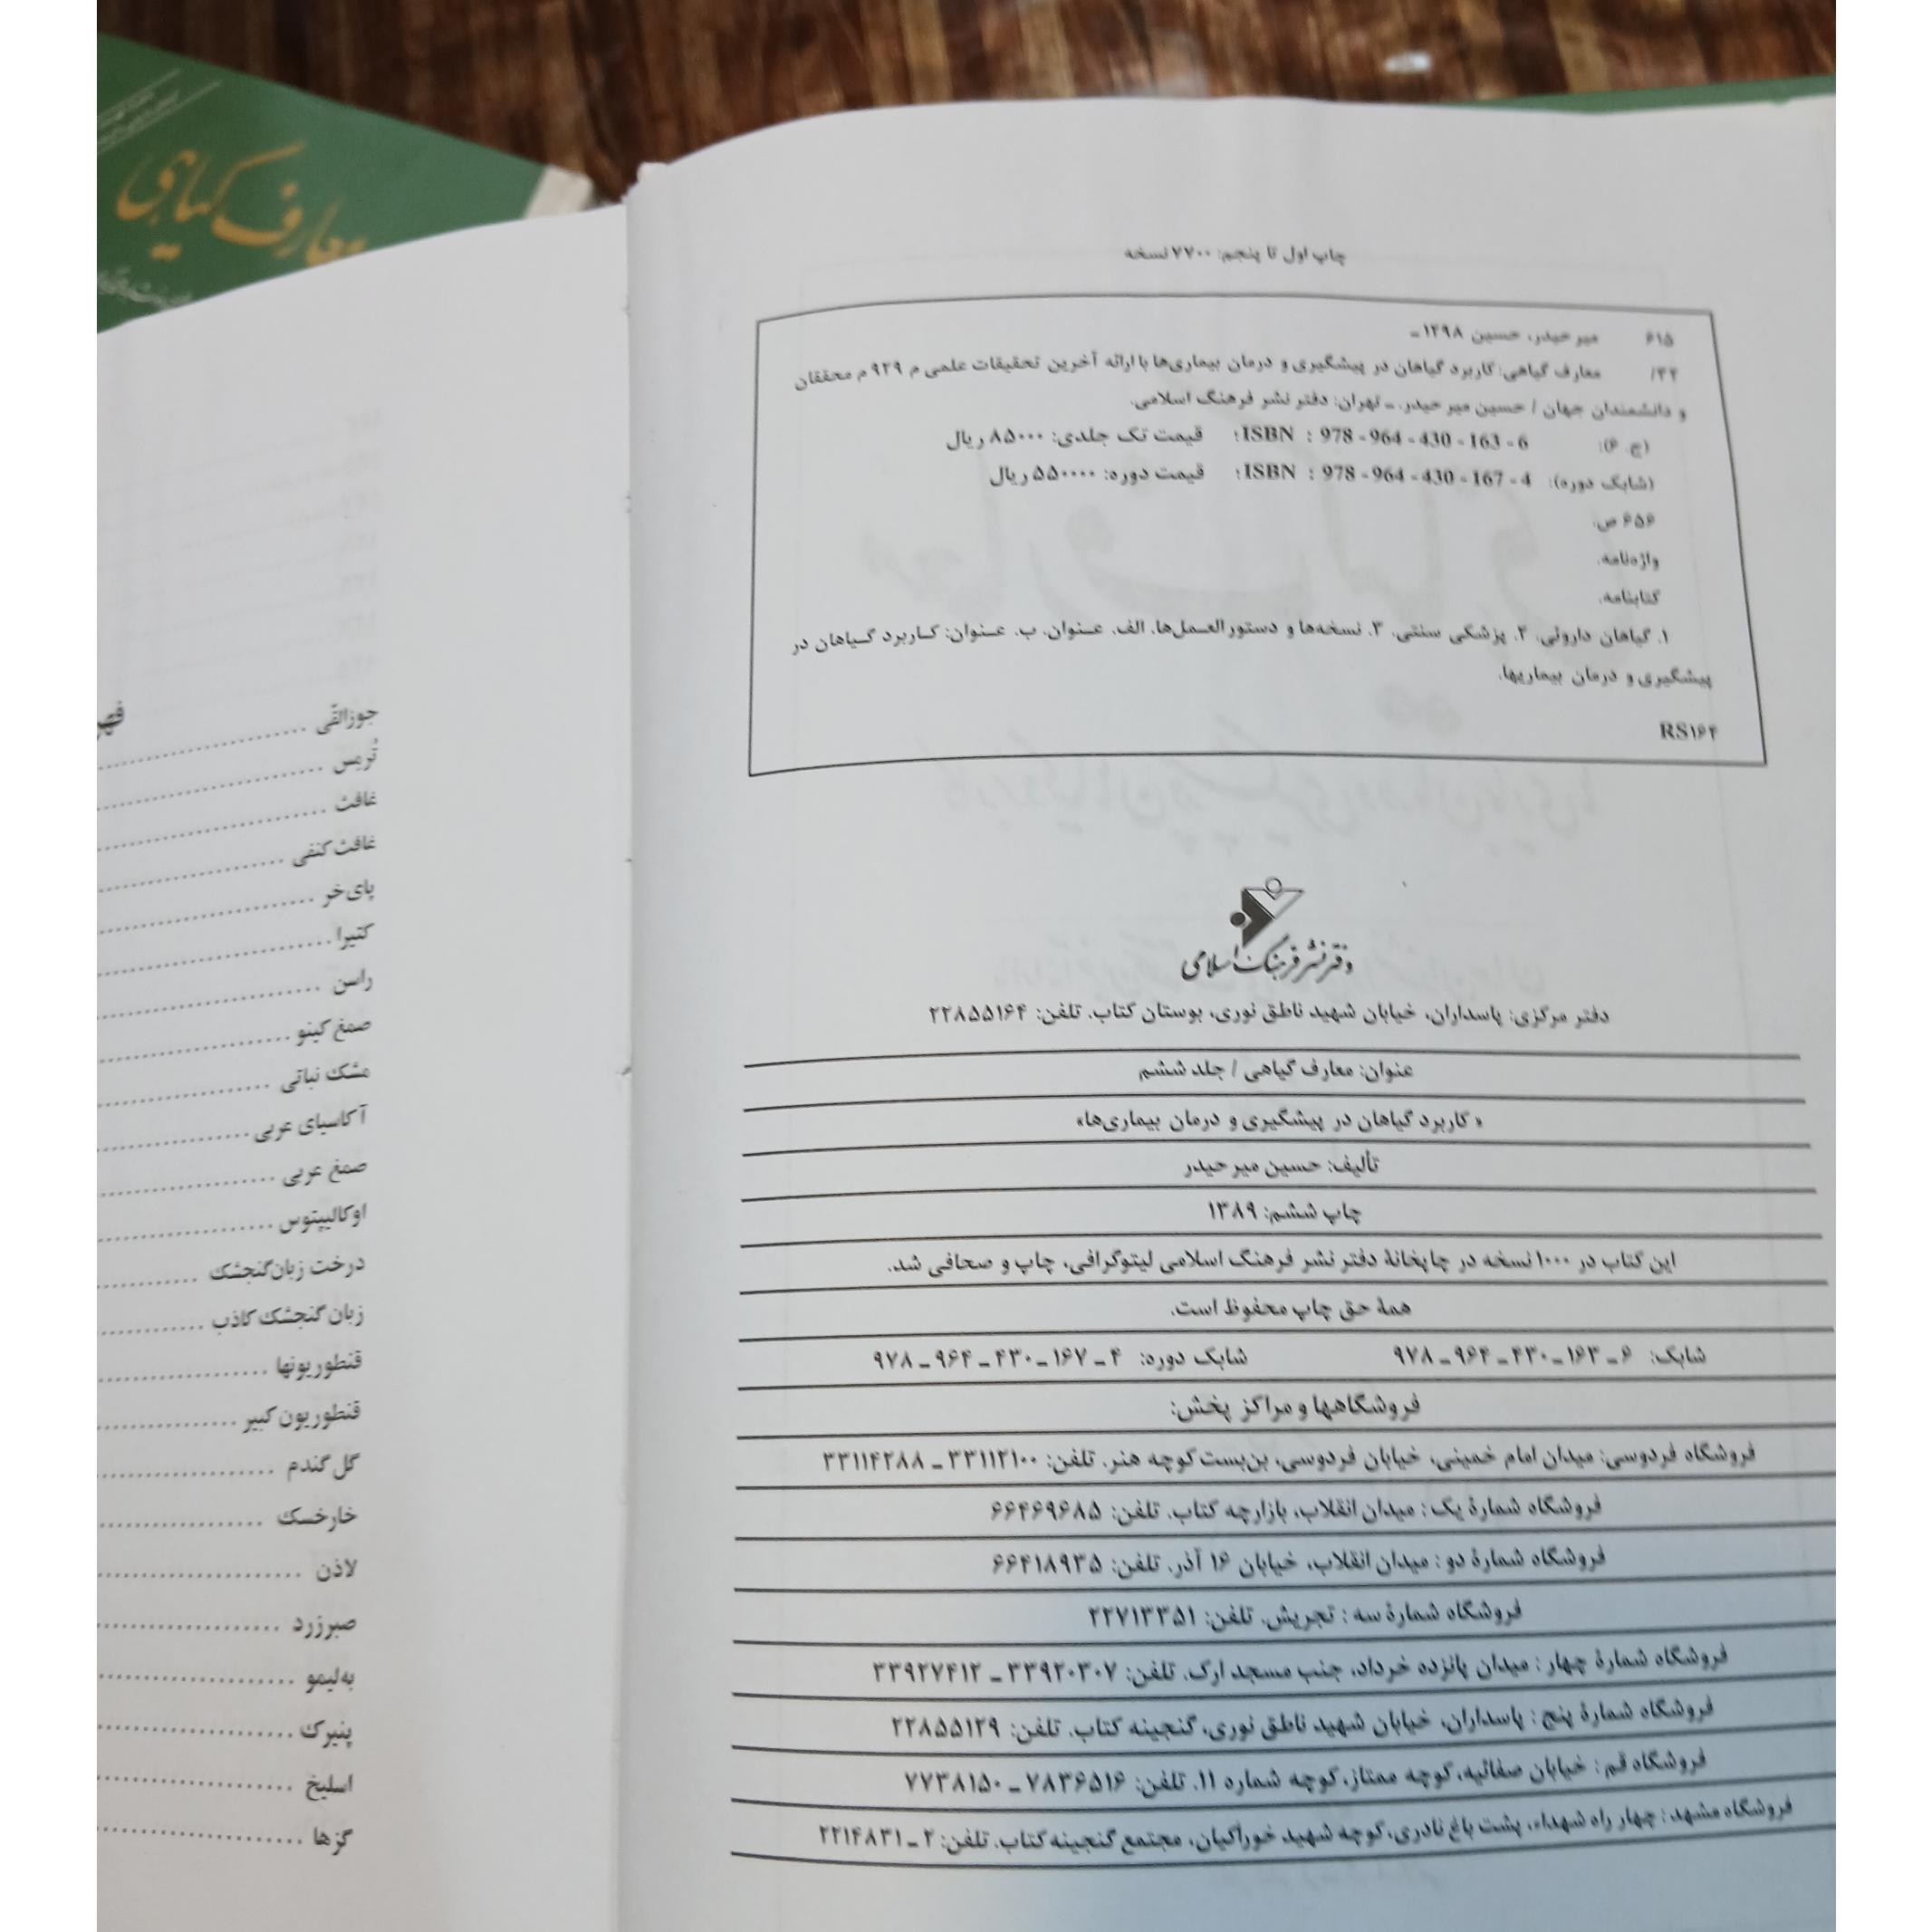 معارف گیاهی
چاپ اول تا پنجم: ۷۷۰۰ نسخه
۶۱۵ میرحیدر، حسین ۱۲۹۸ ـ
/۳۲ معارف گیاهی: کاربرد گیاهان در پیشگیری و درمان بیماری‌ها با ارائه آخرین تحقیقات علمی م ۹۲۹ م محققان
و دانشمندان جهان / حسین میرحیدر. ـ تهران: دفتر نشر فرهنگ اسلامی.
(ج. ۶): ISBN : 978 - 964 - 430 - 163 - 6؛ قیمت تک جلدی: ۸۵۰۰۰ ریال
(شابک دوره): ISBN : 978 - 964 - 430 - 167 - 4؛ قیمت دوره: ۵۵۰۰۰۰ ریال
۶۵۶ ص.
واژه‌نامه.
کتابنامه.
۱. گیاهان داروئی. ۲. پزشکی سنتی. ۳. نسخه‌ها و دستورالعمل‌ها. الف. عنوان. ب. عنوان: کاربرد گیاهان در
پیشگیری و درمان بیماریها.
RS۱۶۴
دفتر نشر فرهنگ اسلامی
دفتر مرکزی: پاسداران، خیابان شهید ناطق نوری، بوستان کتاب. تلفن: ۲۲۸۵۵۱۶۴
عنوان: معارف گیاهی / جلد ششم
«کاربرد گیاهان در پیشگیری و درمان بیماری‌ها»
تألیف: حسین میرحیدر
چاپ ششم: ۱۳۸۹
این کتاب در ۱۰۰۰ نسخه در چاپخانهٔ دفتر نشر فرهنگ اسلامی لیتوگرافی، چاپ و صحافی شد.
همهٔ حق چاپ محفوظ است.
شابک: ۶ ـ ۱۶۳ ـ ۴۳۰ ـ ۹۶۴ ـ ۹۷۸ شابک دوره: ۴ ـ ۱۶۷ ـ ۴۳۰ ـ ۹۶۴ ـ ۹۷۸
فروشگاهها و مراکز پخش:
فروشگاه فردوسی: میدان امام خمینی، خیابان فردوسی، بن‌بست کوچه هنر. تلفن: ۳۳۱۱۲۱۰۰ ـ ۳۳۱۱۴۲۸۸
فروشگاه شمارهٔ یک: میدان انقلاب، بازارچه کتاب. تلفن: ۶۶۴۶۹۶۸۵
فروشگاه شمارهٔ دو: میدان انقلاب، خیابان ۱۶ آذر. تلفن: ۶۶۴۱۸۹۳۵
فروشگاه شمارهٔ سه: تجریش. تلفن: ۲۲۷۱۳۳۵۱
فروشگاه شمارهٔ چهار: میدان پانزده خرداد، جنب مسجد ارک. تلفن: ۳۳۹۲۰۳۰۷ ـ ۳۳۹۲۷۴۱۲
فروشگاه شمارهٔ پنج: پاسداران، خیابان شهید ناطق نوری، گنجینه کتاب. تلفن: ۲۲۸۵۵۱۲۹
فروشگاه قم: خیابان صفائیه، کوچه ممتاز، کوچه شماره ۱۱. تلفن: ۷۸۳۶۵۱۶ ـ ۷۷۳۸۱۵۰
فروشگاه مشهد: چهار راه شهداء، پشت باغ نادری، کوچه شهید خوراکیان، مجتمع گنجینه کتاب. تلفن: ۲ ـ ۲۲۱۴۸۳۱
جوزالقّی
تُرمِس
غافث
غافث کنفی
پای‌خر
کتیرا
راسن
صمغ کینو
مشک نباتی
آکاسیای عربی
صمغ عربی
اوکالیپتوس
درخت زبان‌گنجشک
زبان گنجشک کاذب
قنطوریونها
قنطوریون کبیر
گل گندم
خارخسک
لاذن
صبرزرد
به‌لیمو
پنیرک
اسلیخ
گزها